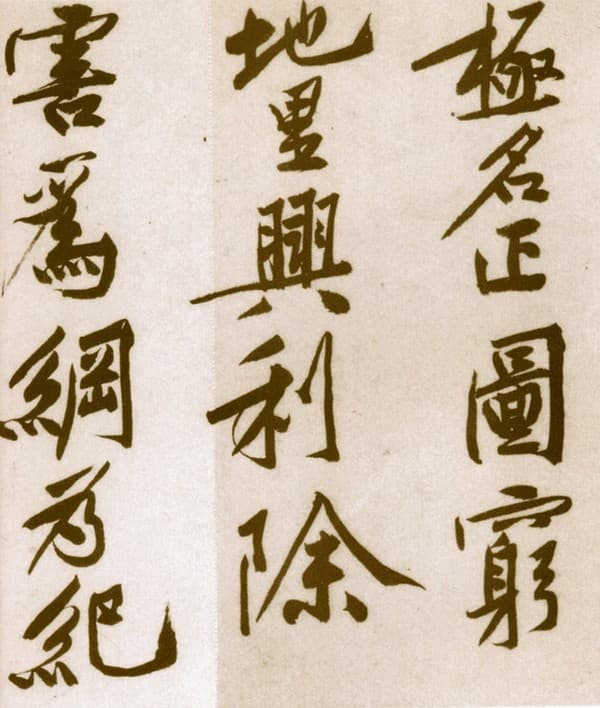 極名正圖窮
地里興利除
害爲綱為紀